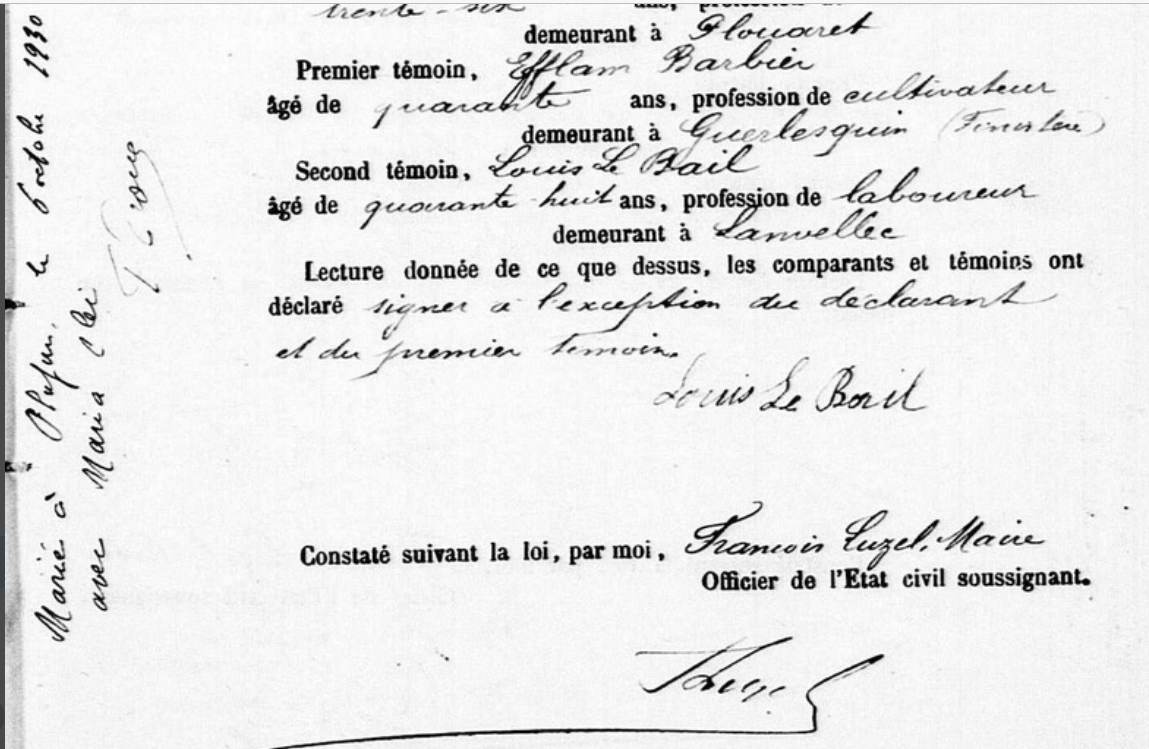 trente-six ans, profession de
demeurant à Plouaret
Premier témoin, Efflam Barbier
âgé de quarante ans, profession de cultivateur
demeurant à Guerlesquin (Finistère)
Second témoin, Louis Le Bail
âgé de quarante huit ans, profession de laboureur
demeurant à Lanvellec
Lecture donnée de ce que dessus, les comparants et témoins ont
déclaré signer à l'exception du déclarant
et du premier témoin.
Louis Le Bail
Constaté suivant la loi, par moi, François Luzel, Maire
Officier de l'Etat civil soussignant.
Marié à le 6 octobre 1930
avec Maria